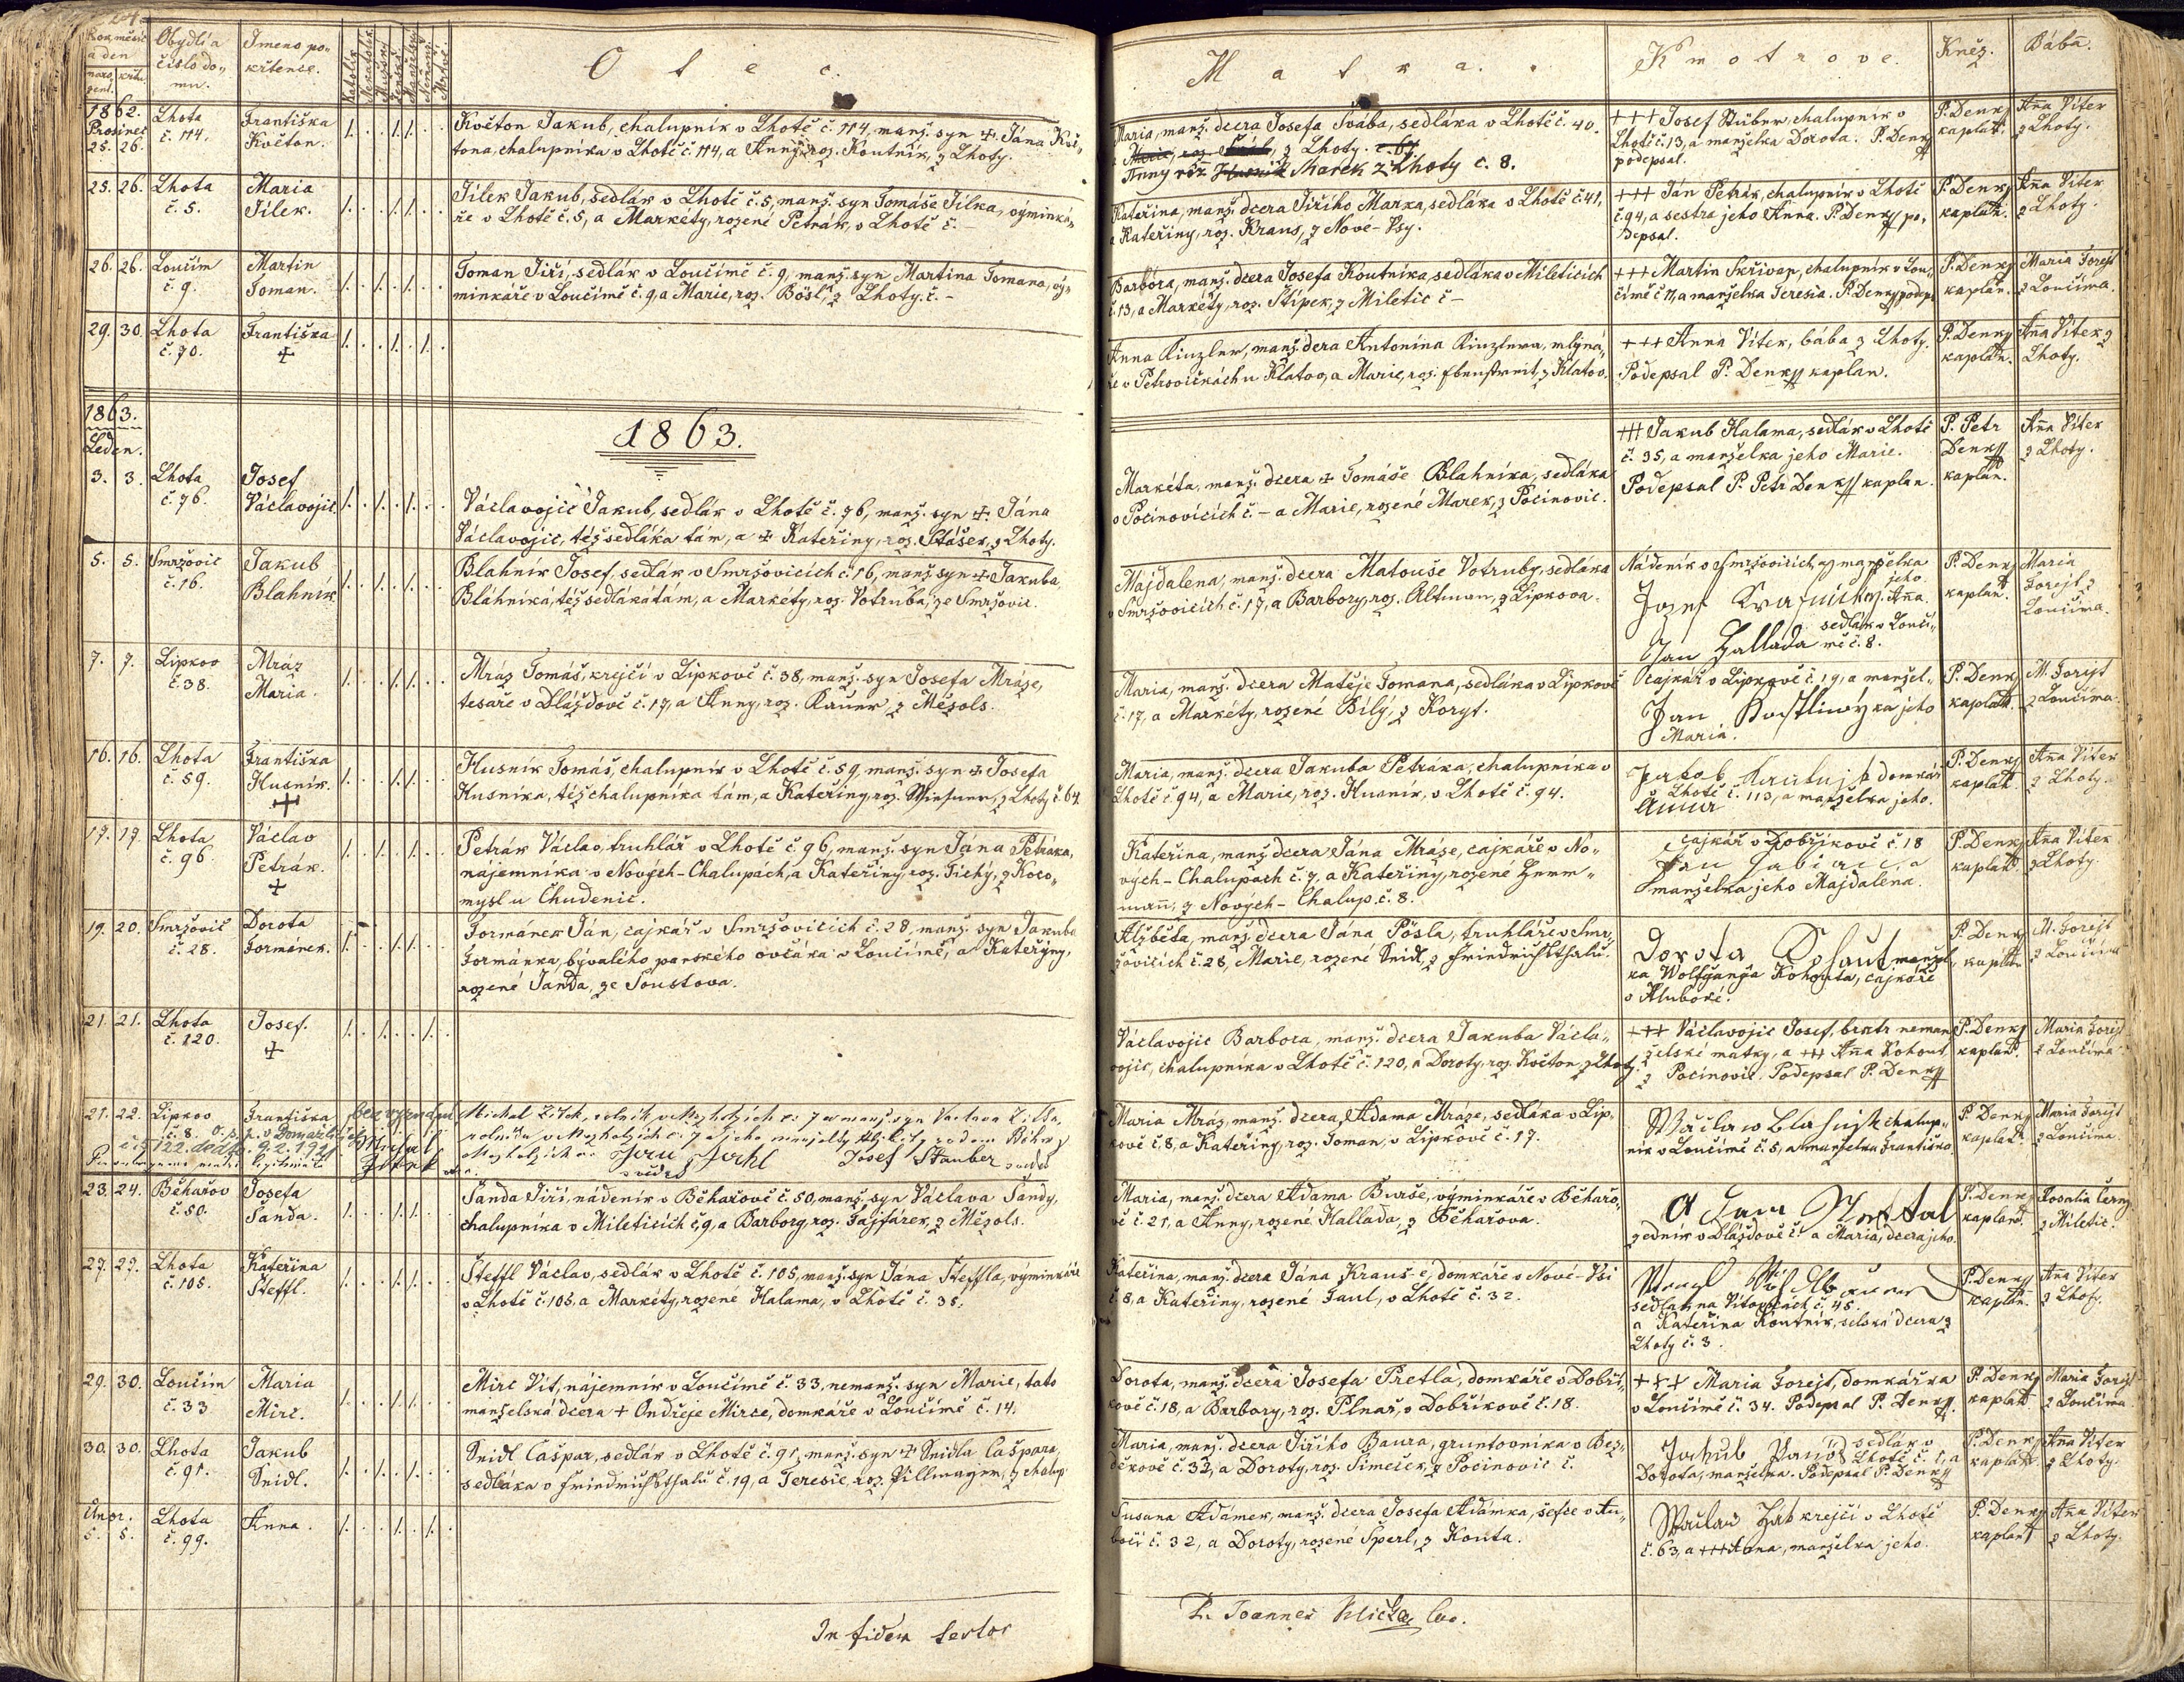 Rok měsíc
a den
naro
zení.
křtu.
Obydlí a
číslo do-
mu.
Jmeno po-
křtence.
Katolík
Nekatolík
Mužský
Ženské
Manželský
Nemanž.
Otec.
Matka.
Kmotrove.
Kněz.
Bába.
1862.
Prosinec
25. 26.
Lhota
č. 114.
Františka
Květon.
Květon Jakub, chalupník v Lhotě č. 114, manž. syn +. Jána Kvě-
tona, chalupníka v Lhotě č. 114, a Anny, roz. Koutník, z Lhoty.
Maria, manž. dcera Josefa Švába, sedláka v Lhotě č. 40.
Anny roz Marek z Lhoty č. 8.
+++ Josef Stüber, chalupník v
Lhotě č. 13, a manželka Dorota. P. Denk
podepsal.
P. Denk
kaplan.
Aña Viter
z Lhoty.
25. 26.
Lhota
č. 5.
Maria
Jílek.
Jílek Jakub, sedlák v Lhotě č. 5, manž. syn Tomáše Jílka, výminká-
ře v Lhotě č. 5, a Markéty, rozené Petrák, v Lhotě č. -
Kateřina, manž. dcera Jiřího Marka, sedláka v Lhotě č. 41,
a Kateřiny, roz. Kraus, z Nové-Vsy.
+++ Ján Petrák, chalupník v Lhotě
č. 94, a sestra jeho Anna. P. Denk po-
depsal.
P. Denk
kaplan.
Aña Viter
z Lhoty.
26. 26.
Loučim
č. 9.
Martin
Toman.
Toman Jiří, sedlák v Loučimě č. 9, manž. syn Martina Tomana, vý-
minkáře v Loučimě č. 9, a Marie, roz. Bösl, z Lhoty. č. -
Barbóra, manž. dcera Josefa Koutníka, sedláka v Mileticích
č. 13, a Markéty, roz. Štípek, z Miletic č -
+++ Martin Skřivan, chalupník v Lou-
čimě č 11, a manželka Teresia. P. Denk podeps.
P. Denk
kaplan.
Maria Forejt
z Loučima.
29. 30.
Lhota
č. 70.
Františka
+
Anna Kinzler, manž. dcera Antonína Kinzlera, mlyná-
ře v Petrovičkách u Klatov, a Marie, roz. Ehrnstreit, z Klatov.
+++ Anna Viter, bába z Lhoty.
Podepsal P. Denk kaplan.
P. Denk
kaplan.
Aña Viter z
Lhoty.
1863.
Leden.
1863.
3. 3.
Lhota
č. 76.
Josef
Václavojic.
Václavojic Jakub, sedlák v Lhotě č. 76, manž. syn +. Jána
Václavojic, též sedláka tám, a + Kateřiny, roz. Stášek, z Lhoty.
Markéta, manž. dcera + Tomáše Blahníka, sedláka
v Pocinovicích č. - a Marie, rozené Marek, z Pocinovic.
+++ Jakub Halama, sedlák v Lhotě
č. 35, a manželka jeho Marie.
Podepsal P. Petr Denk kaplan.
P. Petr
Denk
kaplan.
Aña Viter
z Lhoty.
5. 5.
Smržovic
č. 16.
Jakub
Blahník
Blahník Josef, sedlák v Smržovicích č. 16, manž. syn +. Jakuba
Blahníka, též sedláka tám, a Markéty, roz. Votruba, ze Smržovic.
Majdalena, manž. dcera Matouše Votruby, sedláka
v Smržovicích č. 17, a Barbory, roz. Altman, z Lipkova.
Nádeník v Smržovicích a manželka
jeho
Aña.
Jan Hallada
sedlák v Louči-
mě č. 8.
P. Denk
kaplan.
Maria
Forejt z
Loučima.
7. 7.
Lipkov
č. 38.
Mráz
Maria.
Mráz Tomáš, krejčí v Lipkově č. 38, manž. syn Josefa Mráze,
tesaře v Dlažďově č. 17, a Anny, roz. Kauer, z Mězols.
Maria, manž. dcera Matěje Tomana, sedláka v Lipkově
č. 17, a Markéty, rozené Bílý, z Koryt.
cajkář v Lipkově č. 19, a manžel-
Jan ka jeho
Maria.
P. Denk
kaplan.
M. Forejt
z Loučima.
16. 16.
Lhota
č. 59.
Františka
Husník.
+
Husník Tomáš, chalupník v Lhotě č. 59, manž. syn + Josefa
Husníka, též chalupníka tám, a Kateřiny, roz. z Lhoty č. 64.
Maria, manž. dcera Jakuba Petráka, chalupníka v
Lhotě č. 94, a Marie, roz. Husník, v Lhotě č. 94.
Jakob domkář
Lhotě č. 113, a manželka jeho.
Anna
P. Denk
kaplan.
Aña Viter
z Lhoty.
17. 17.
Lhota
č. 96.
Václav
Petrák.
+
Petrák Václav, truhlář v Lhotě č. 96, manž. syn Jána Petráka,
nájemníka v Nových-Chalupách, a Kateřiny, roz. Tichý, z Koco-
mysl u Chudenic.
Kateřina, manž. dcera Jána Mráze, cajkáře v No-
vých-Chalupách č. 7, a Kateřiny, rozené Herr-
mann, z Nových-Chalup. č. 8.
cajkář v Dobříkově č. 18
manželka jeho Majdaléna.
P. Denk
kaplan.
Aña Viter
z Lhoty.
19. 20.
Smržovic
č. 28.
Dorota
Formánek.
Formánek Ján, cajkář v Smržovicích č. 28, manž. syn Jakuba
Formánka, bývalého panského ovčáka v Loučimě, a Kateřýny,
rozené Janda, ze Soustova.
Alžběta, manž. dcera Jána Pösla, truhláře v Smr-
žovicích č. 28, Marie, rozené Snidl, z Friedrichsthalu.
Dorota Kohaut manžel-
ka Wolfganga Kohouta, cajkáře
v Hluboké.
P. Denk
kaplan
M. Forejt
z Loučima
21. 21.
Lhota
č. 120.
Josef.
+
Václavojic Barbora, manž. dcera Jakuba Václa-
vojic, chalupníka v Lhotě č. 120, a Doroty, roz. Květon, z Lhoty.
+++ Václavojic Josef, bratr neman-
želské matky, a +++ Aña Kohout,
z Pocinovic. Podepsal P. Denk
P. Denk
kaplan.
Maria Forejt
z Loučima
21. 22.
Lipkov
č. 8.
Františka
Michal Žitek, rolník v č. 7 manž. syn Václava Žitka,
Josef Stauber svědek
svědek
Maria Mráz, manž. dcera Adama Mráze, sedláka v Lip-
kově č. 8, a Kateřiny, roz. Toman, v Lipkově č. 17.
Wáclaw Blahník chalup-
ník v Loučimě č. 5, a manželka Františka
P. Denk
kaplan.
Maria Forejt
z Loučima.
23. 24.
Běhařov
č. 50.
Josefa
Šanda.
Šanda Jiří, nádeník v Běhařově č. 50, manž. syn Václava Šandy,
chalupníka v Mileticích č. 9, a Barbory, roz. Tájfárek, z Mězols.
Maria, manž. dcera Adama Burše, výminkáře v Běhařo-
vě č. 21, a Anny, rozené Hallada, z Běhařova.
Adam
zedník v Dlažďově č. a Maria, dcera jeho.
P. Denk
kaplan.
Rosalia Černy
z Miletic.
27. 27.
Lhota
č. 105.
Kateřina
Šteffl.
Šteffl Václav, sedlák v Lhotě č. 105, manž. syn Jána Šteffla, výminkáře
v Lhotě č. 105, a Markéty, rozené Halama, v Lhotě č. 35.
Kateřina, manž. dcera Jána Krause, domkáře v Nové-Vsi
č. 8, a Kateřiny, rozené Taul, v Lhotě č. 32.
sedlák na Vítovkách č. 45.
a Kateřina Koutník, selská dcera z
Lhoty č. 3.
P. Denk
kaplan.
Aña Viter
z Lhot.
29. 30.
Loučim
č. 33
Maria
Mirc.
Mirc Vít, nájemník v Loučimě č. 33, nemanž. syn Marie, tato
manželská dcera + Ondřeje Mirce, domkáře v Loučimě č. 14.
Dorota, manž. dcera Josefa Pretla, domkáře v Dobří-
kově č. 18, a Barbory, roz. Plnař, v Dobříkově č. 18.
+++ Maria Forejt, domkářka
v Loučimě č. 34. Podepsal P. Denk.
P. Denk
kaplan
Maria Forejt
z Loučima.
30. 30.
Lhota
č. 91.
Jakub
Snidl.
Snidl Cašpar, sedlák v Lhotě č. 91, manž. syn + Snidla Cašpara,
sedláka v Friedrichsthalu č. 19, a Teresie, roz. Sillmayer, z chalup
Maria, manž. dcera Jiřího Baura, gruntovníka v Bez-
děkově č. 32, a Doroty, roz. Šimeček, z Pocinovic č.
Jachub sedlák v
Lhotě č. 1, a
Dorota, manželka. Podepsal P. Denk
P. Denk
kaplan.
Aña Viter
z Lhoty.
Únor.
5. 5.
Lhota
č. 99.
Anna.
Susana Adámek, manž. dcera Josefa Adámka, ševce v Au-
bočí č. 32, a Doroty, rozené Šperl, z Kouta.
Wácław krejčí v Lhotě
č. 63, a +++ Anna, manželka jeho.
P. Denk
kaplan
Aña Viter
z Lhoty.
In fidem testor
P. Joannes Klička Coo.